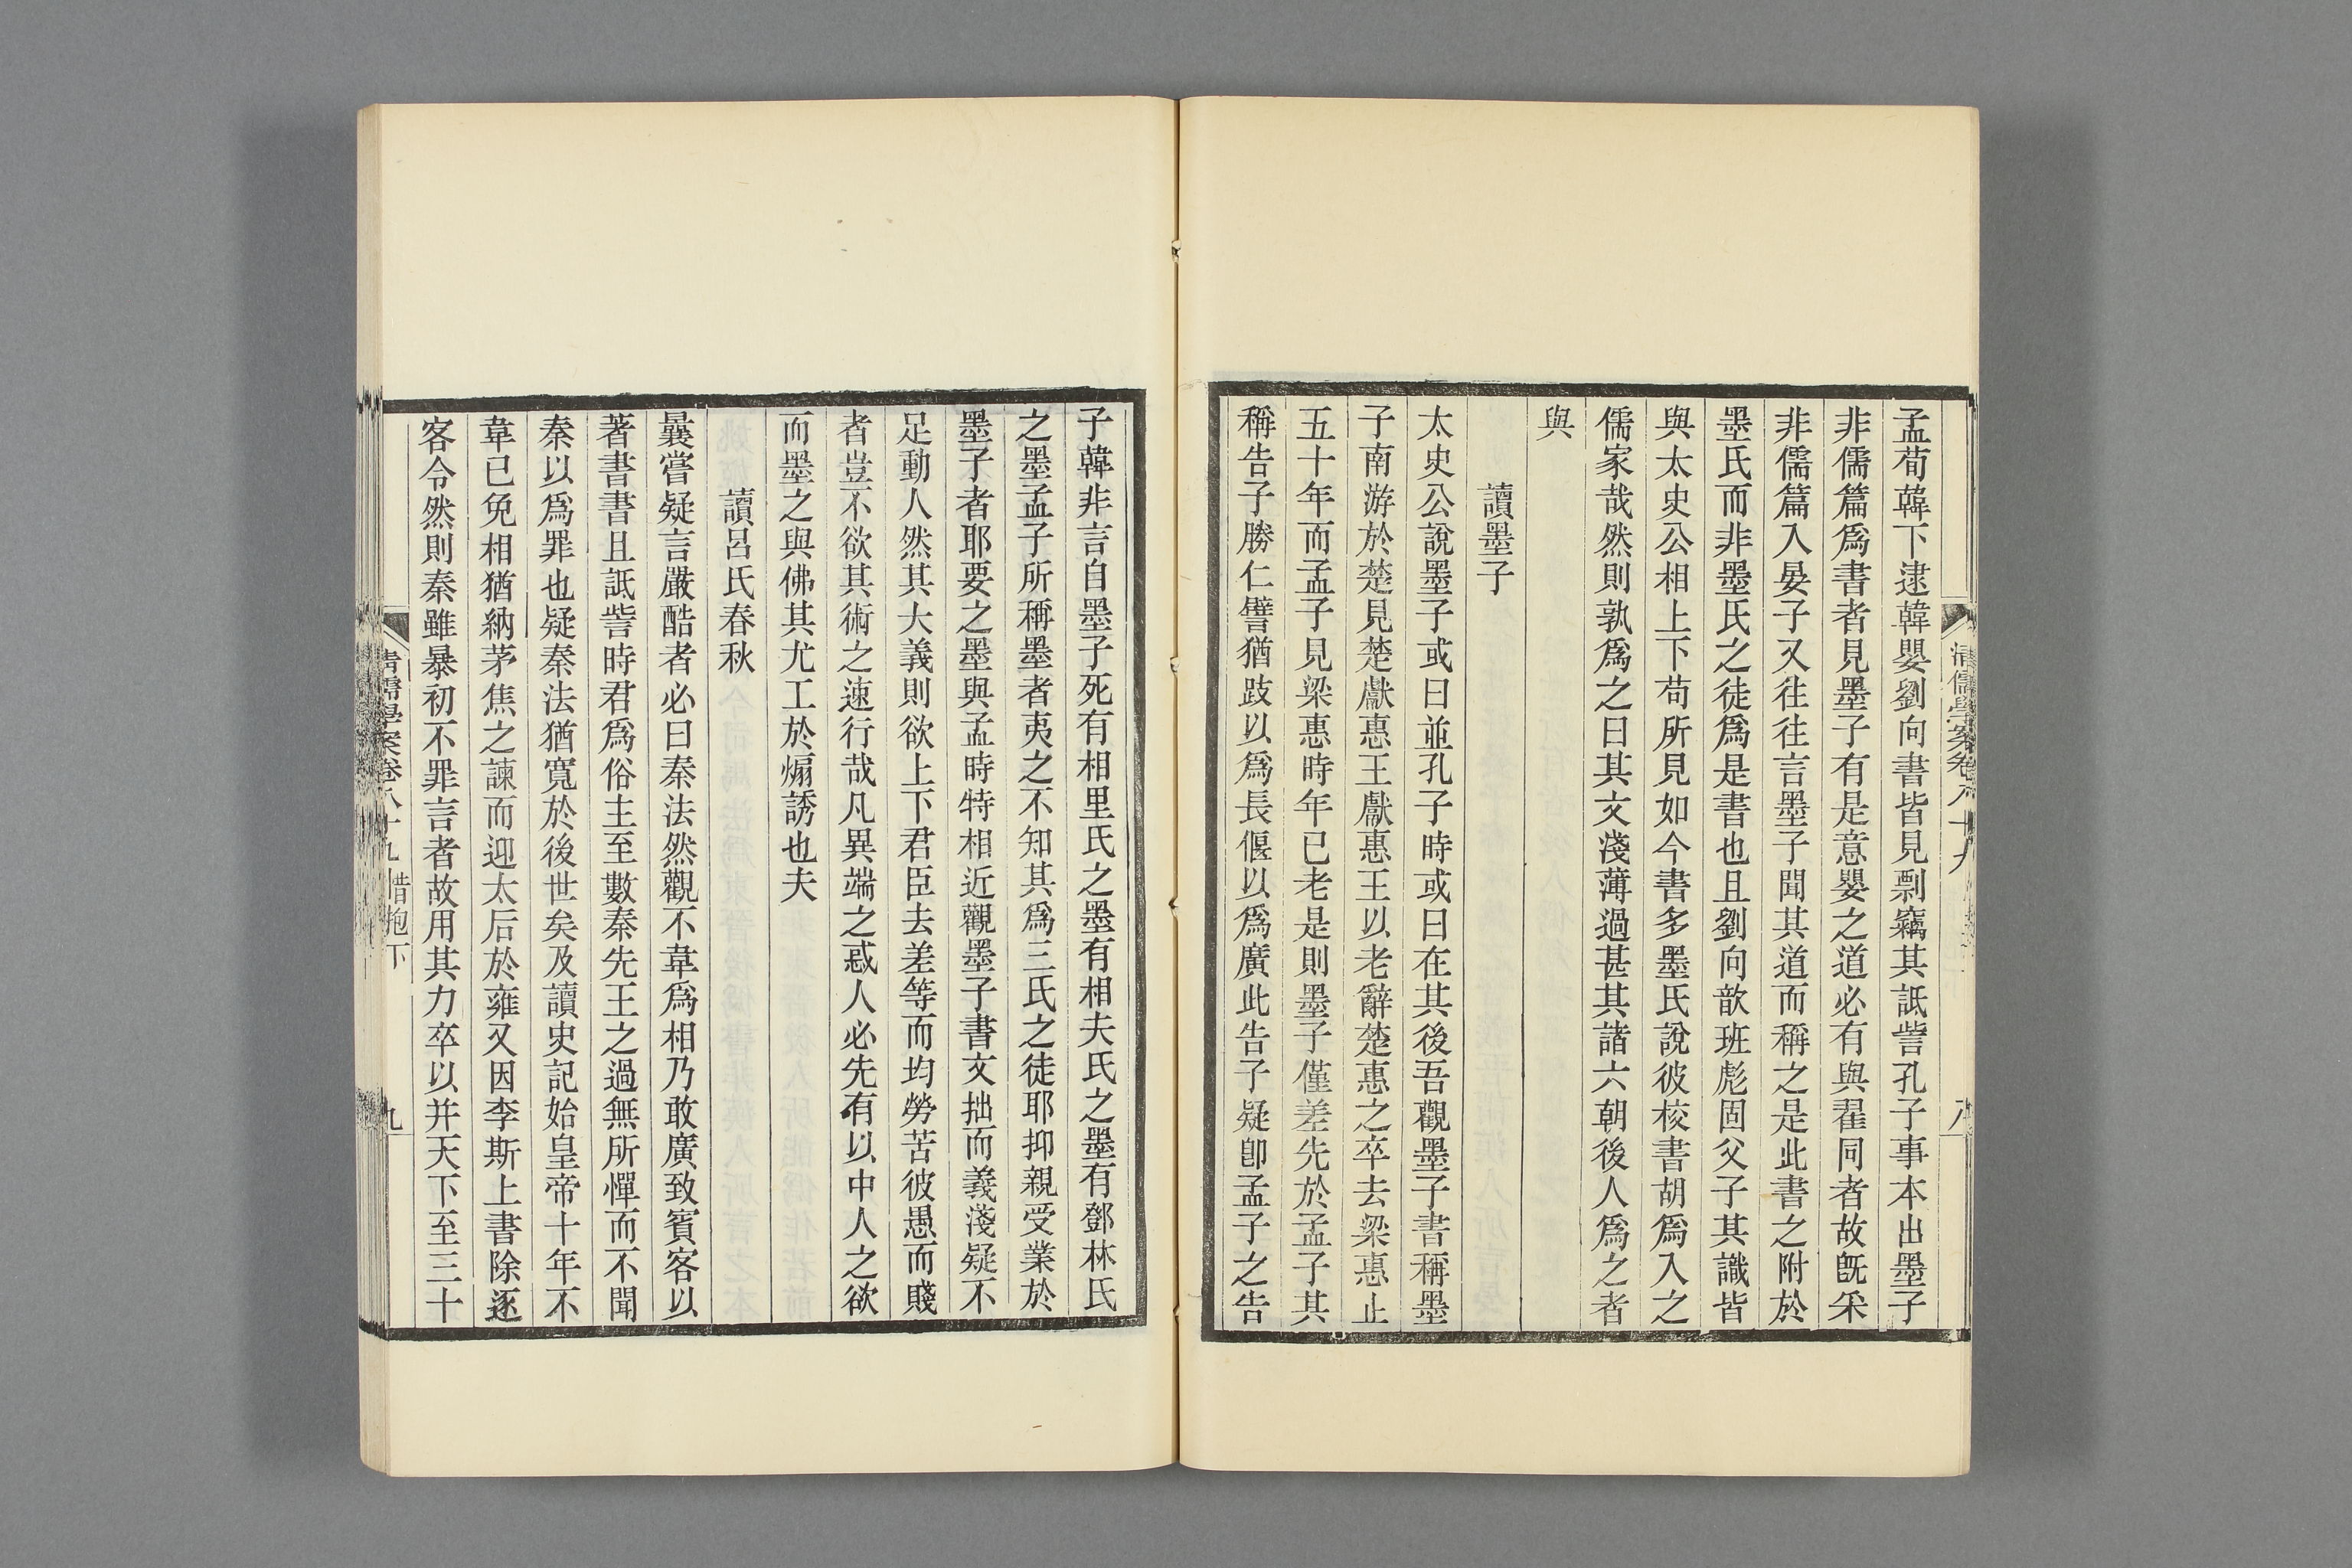 清儒學案卷八十九
八
孟荀韓下逮韓嬰劉向書皆見剽竊其詆訾孔子事本出墨子
非儒篇爲書者見墨子有是意嬰之道必有與翟同者故旣采
非儒篇入晏子又往往言墨子聞其道而稱之是此書之附於
墨氏而非墨氏之徒爲是書也且劉向歆班彪固父子其識皆
與太史公相上下苟所見如今書多墨氏說彼校書胡爲入之
儒家哉然則孰爲之曰其文淺薄過甚其諸六朝後人爲之者
與
讀墨子
太史公說墨子或曰並孔子時或曰在其後吾觀墨子書稱墨
子南游於楚見楚獻惠王獻惠王以老辭楚惠之卒去梁惠止
五十年而孟子見梁惠時年已老是則墨子僅差先於孟子其
稱告子勝仁譬猶跂以爲長偃以爲廣此告子疑卽孟子之告
子韓非言自墨子死有相里氏之墨有相夫氏之墨有鄧林氏
之墨孟子所稱墨者夷之不知其爲三氏之徒耶抑親受業於
墨子者耶要之墨與孟時特相近觀墨子書文拙而義淺疑不
足動人然其大義則欲上下君臣去差等而均勞苦彼愚而賤
者豈不欲其術之速行哉凡異端之惑人必先有以中人之欲
而墨之與佛其尤工於煽誘也夫
讀呂氏春秋
曩嘗疑言嚴酷者必曰秦法然觀不韋爲相乃敢廣致賓客以
著書書且詆訾時君爲俗主至數秦先王之過無所憚而不聞
秦以爲罪也疑秦法猶寬於後世矣及讀史記始皇帝十年不
韋已免相猶納茅焦之諫而迎太后於雍又因李斯上書除逐
客令然則秦雖暴初不罪言者故用其力卒以并天下至三十
清儒學案卷八十九 惜抱下
九